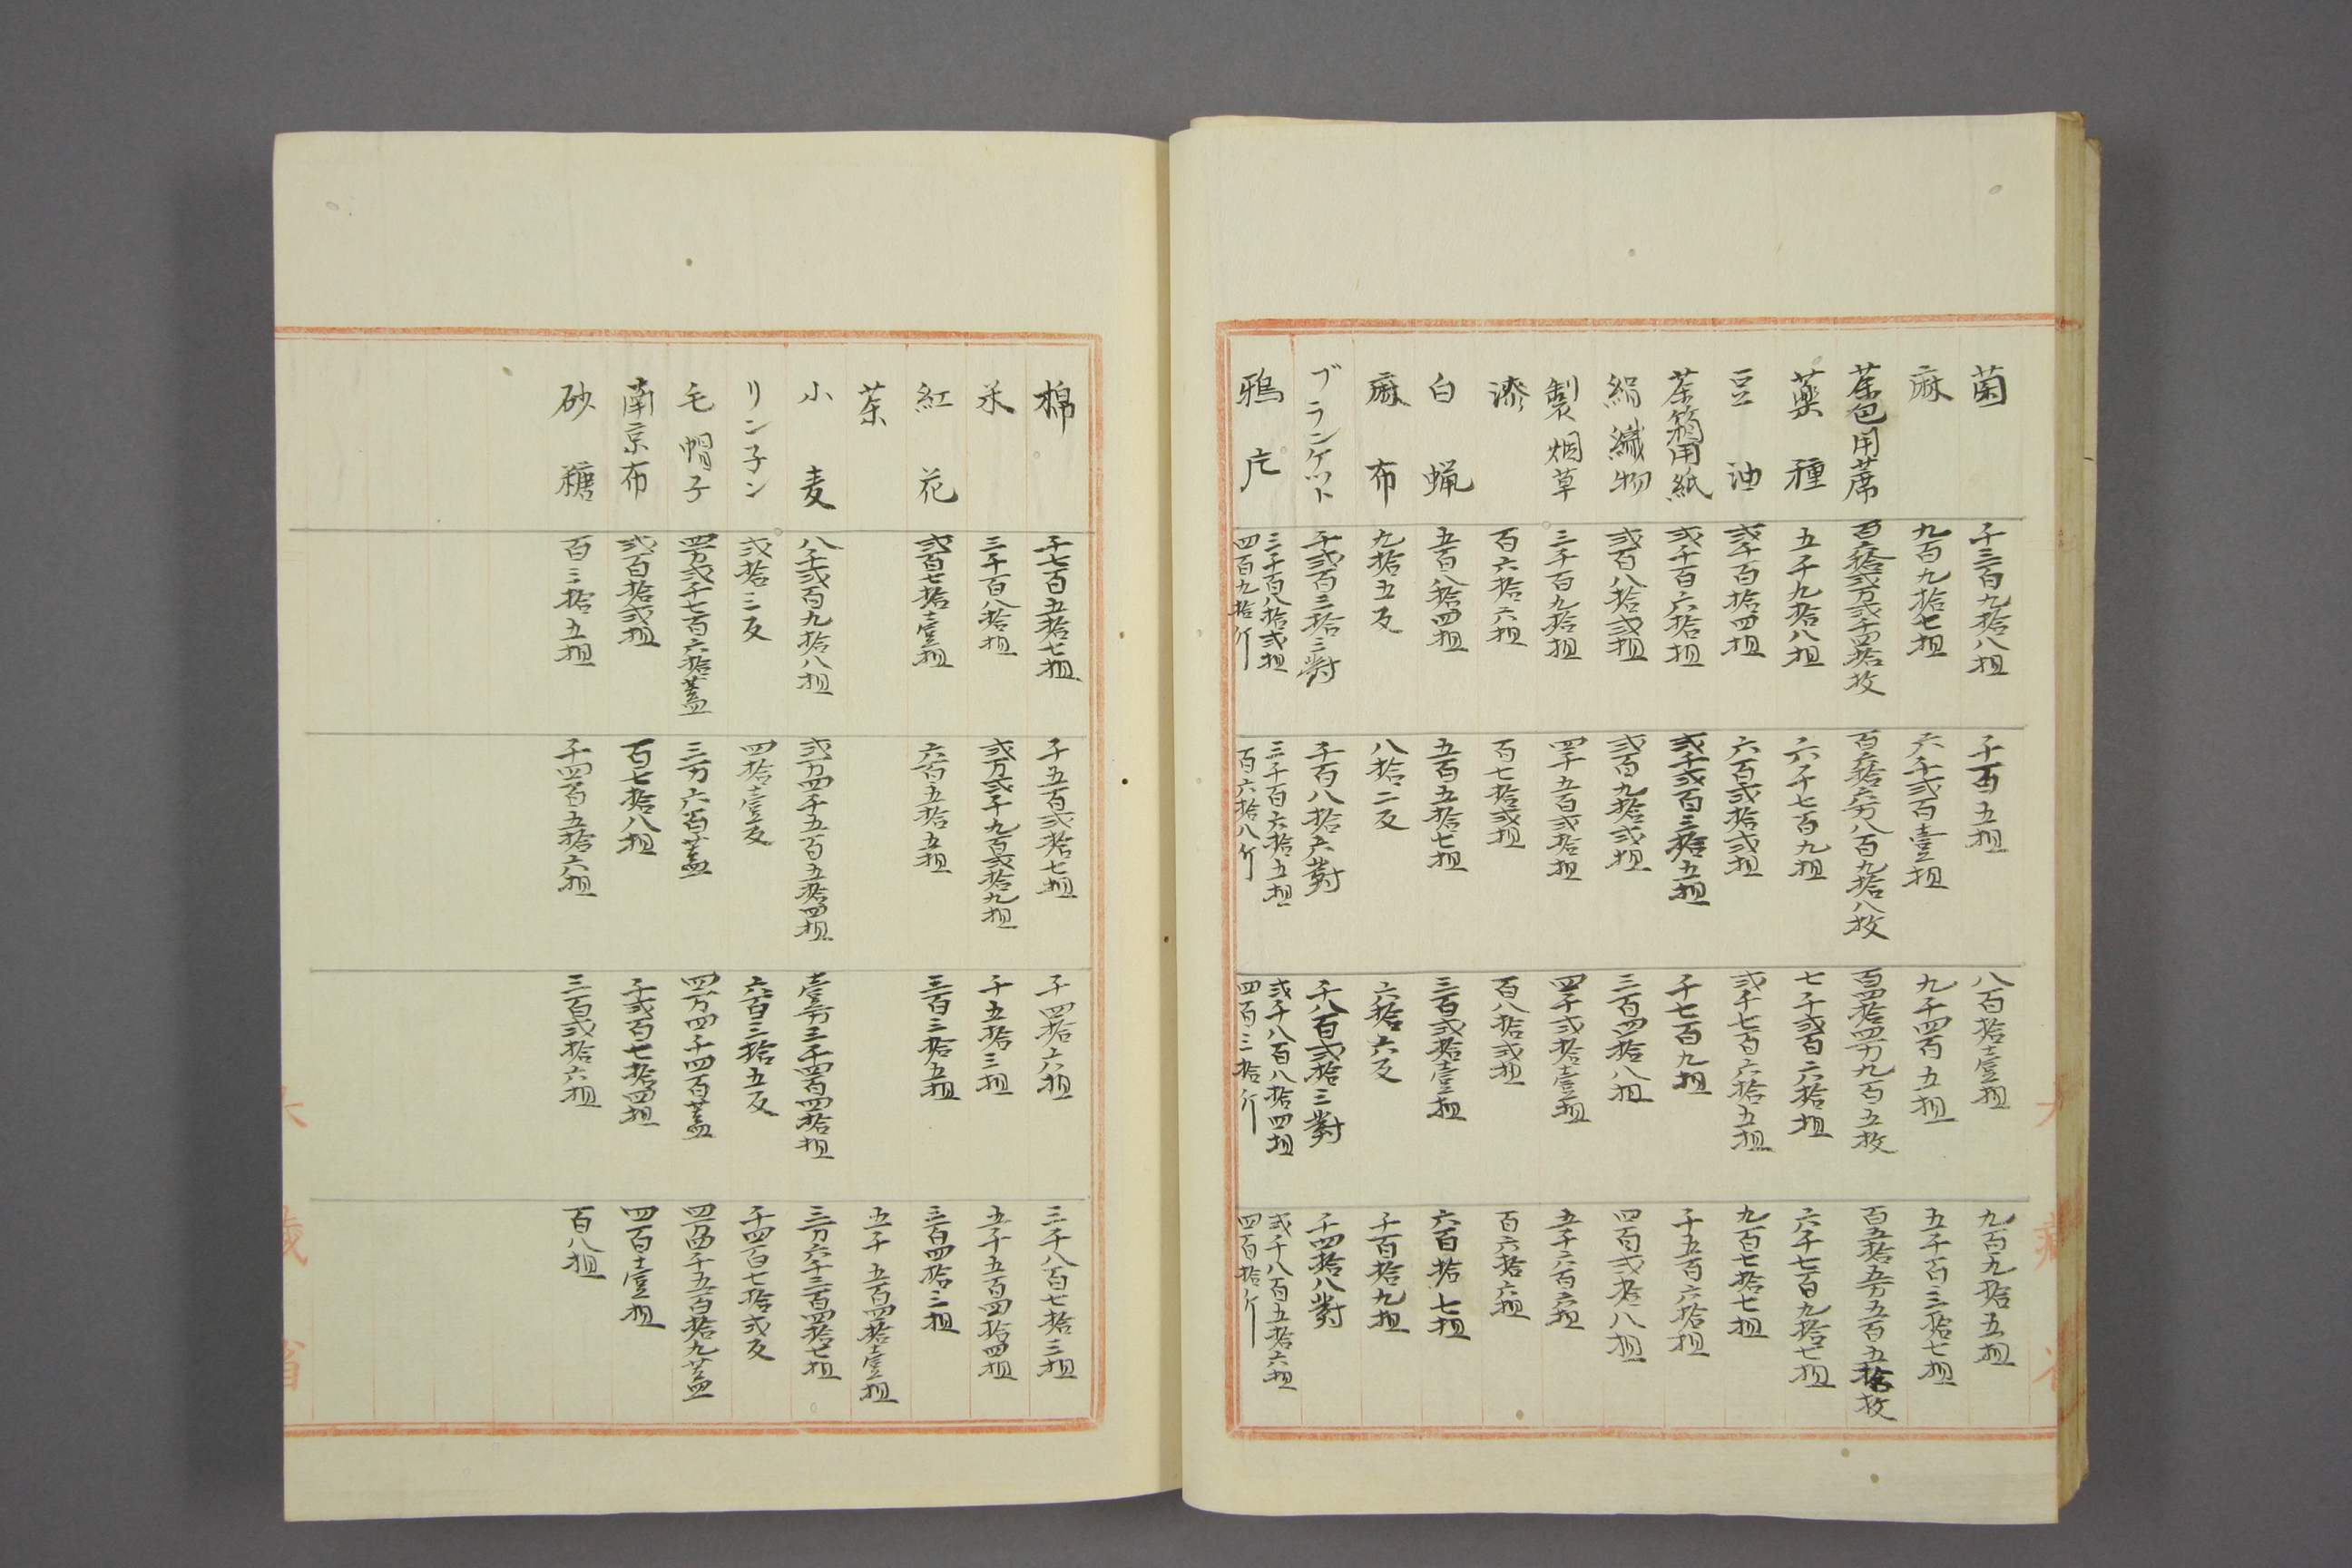 菌 千三百九拾八担 千百五担 八百拾壹担 九百九拾五担
麻 九百九拾七担 六千弐百壹担 九千四百五担 五千百三拾七担
茶包用蓆 百六拾弐万弐千四拾枚 百六拾六万八百九拾八枚 百四拾四万九百五枚 百五拾五万五百五拾枚
薬種 五千九拾八担 六千七百九担 七千弐百六拾担 六千七百九拾七担
豆油 弐千百拾四担 六百弐拾弐担 弐千七百六拾五担 九百七拾七担
茶箱用紙 弐千百六拾担 弐千弐百三拾五担 千七百九担 千五百六拾担
絹織物 弐百八拾弐担 弐百九拾弐担 三百四拾八担 四百弐拾八担
製烟草 三千百九拾担 四千五百弐拾担 四千弐拾壹担 五千六百六担
漆 百六拾六担 百七拾弐担 百八拾弐担 百六拾六担
白蝋 五百八拾四担 五百五拾七担 三百弐拾壹担 六百拾七担
麻布 九拾五反 八拾二反 六拾六反 千百拾九担
ブランケット 千弐百三拾三對 千百八拾六對 千八百弐拾三對 千四拾八對
鴉片 三千百八拾弐担 四百九拾斤 三千百六拾五担 百六拾八斤 弐千八百八拾四担 四百三拾斤 弐千八百五拾六担 四百拾斤
棉 千七百五拾七担 千五百弐拾七担 千四拾六担 三千八百七拾三担
米 三千百八拾担 弐万弐千九百弐拾九担 千五拾三担 五千五百四拾四担
紅花 弐百七拾壹担 六百五拾五担 三百三拾五担 三百四拾三担
茶 五千五百四拾壹担
小麦 八千弐百九拾八担 弐万四千五百五拾四担 壹万三千四百四拾担 三万六千三百四拾七担
リン子ン 弐拾三反 四拾壹反 六百三拾五反 千四百七拾弐反
毛帽子 四万弐千七百六拾蓋 三万六百蓋 四万四千四百蓋 四万四千五百拾九蓋
南京布 弐百拾弐担 百七拾八担 千弐百七拾四担 四百壹担
砂糖 百三拾五担 千四百五拾六担 三百弐拾六担 百八担